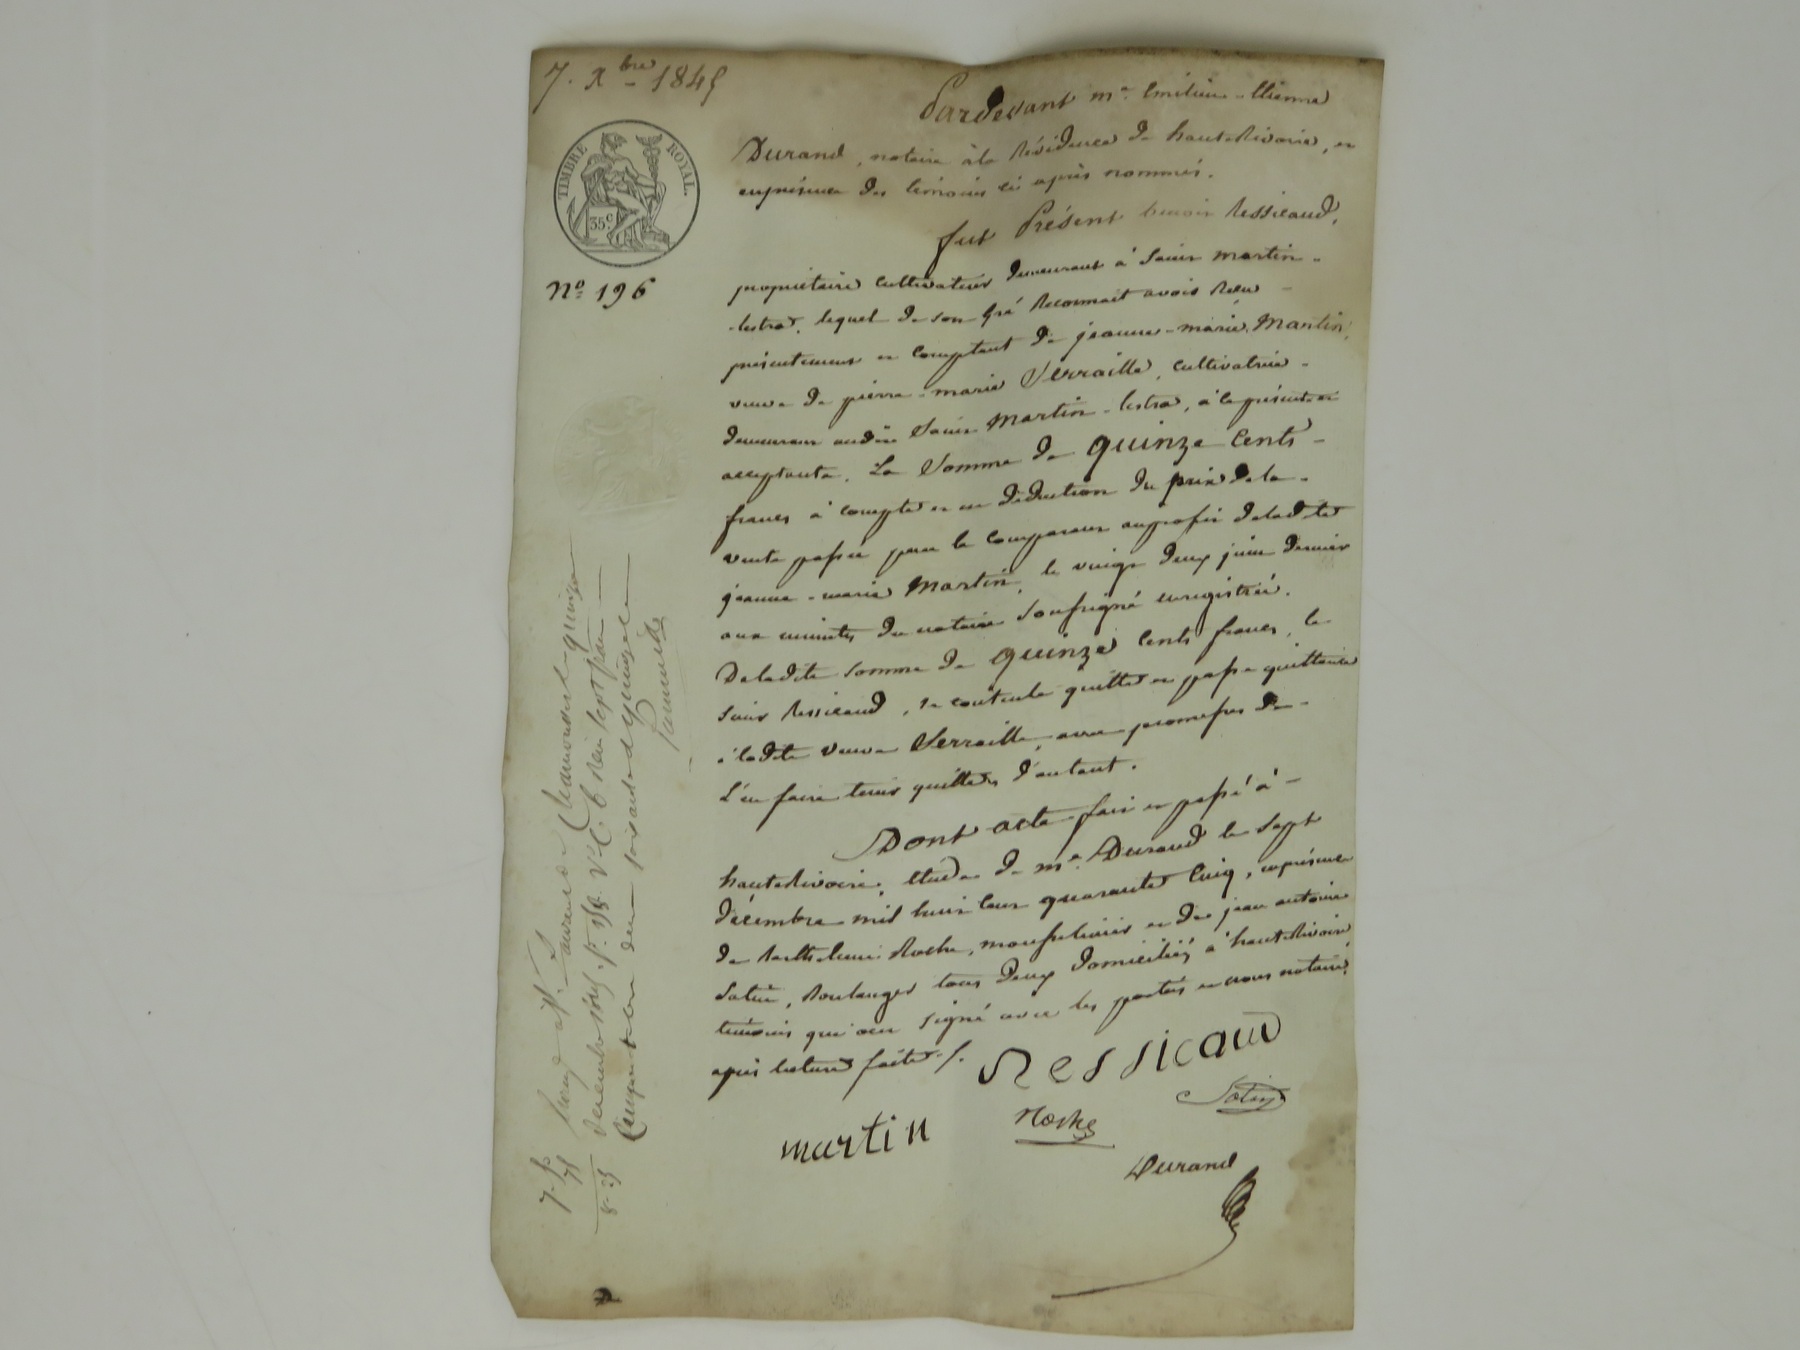 7. Xbre 1845
TIMBRE ROYAL.
35c
No 196
Pardevant me. Emilien-Etienne
Durand, notaire à la Résidence de hauteRivoire, en
enprésence des témoins ci après nommés.
fut Présent benoit Ressicaud,
propriétaire cultivateur demeurant à Saint martin-
-lestra, lequel de son Gré Reconnait avoir Reçu-
présentement en comptant de jeanne-marie Martin,
veuve de pierre-marie Verraille, cultivatrice-
demeurant audit Saint Martin-lestra, à ce présente et
acceptante. La Somme de quinze Cents-
francs à compte et en déduction du prix dela-
vente passée par le comparant auprofit deladite
jeanne-marie Martin, le vingt deux juin dernier
aux minutes du notaire soussigné enregistrée.
Deladite somme de quinze Cents francs, le
Sieur Ressicaud, se contente quitte et passe quittance
à ladite veuve Verraille, avec promesses de-
L'en faire tenir quittes d'autant.
Dont acte fait et passé à-
hauteRivoire, étude de me. Durand le Sept
décembre mil huit Cent quarante Cinq, enprésence
de Barthelemi Roche, menuisier et de jean antoine
Sotin, Boulanger tous deux domiciliés à hauteRivoire
témoins qui ont signé avec les parties et nous notaire,
après lecture faite./.
Ressicaud
Sotin
Roche
martin
Durand
St. Laurent de Chamousset quinze
décembre 1845. fo. Vo. C. 6 Reçu sept francs
décime